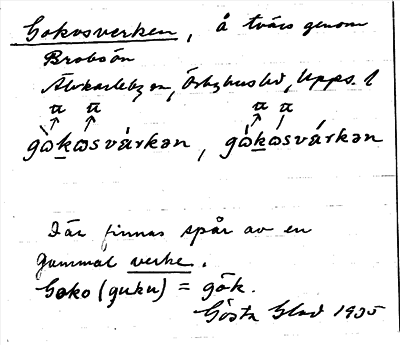 Gokosverken, å tvärs genom
Brobsön
Älvkarleby sn, Örbyhus hd, Upps. l
a a a a
gòkωsvárkən, gòkωsvárkən
Där finnas spår av en
gammal verke.
Goko (guku) = gök.
Gösta Glad 1935